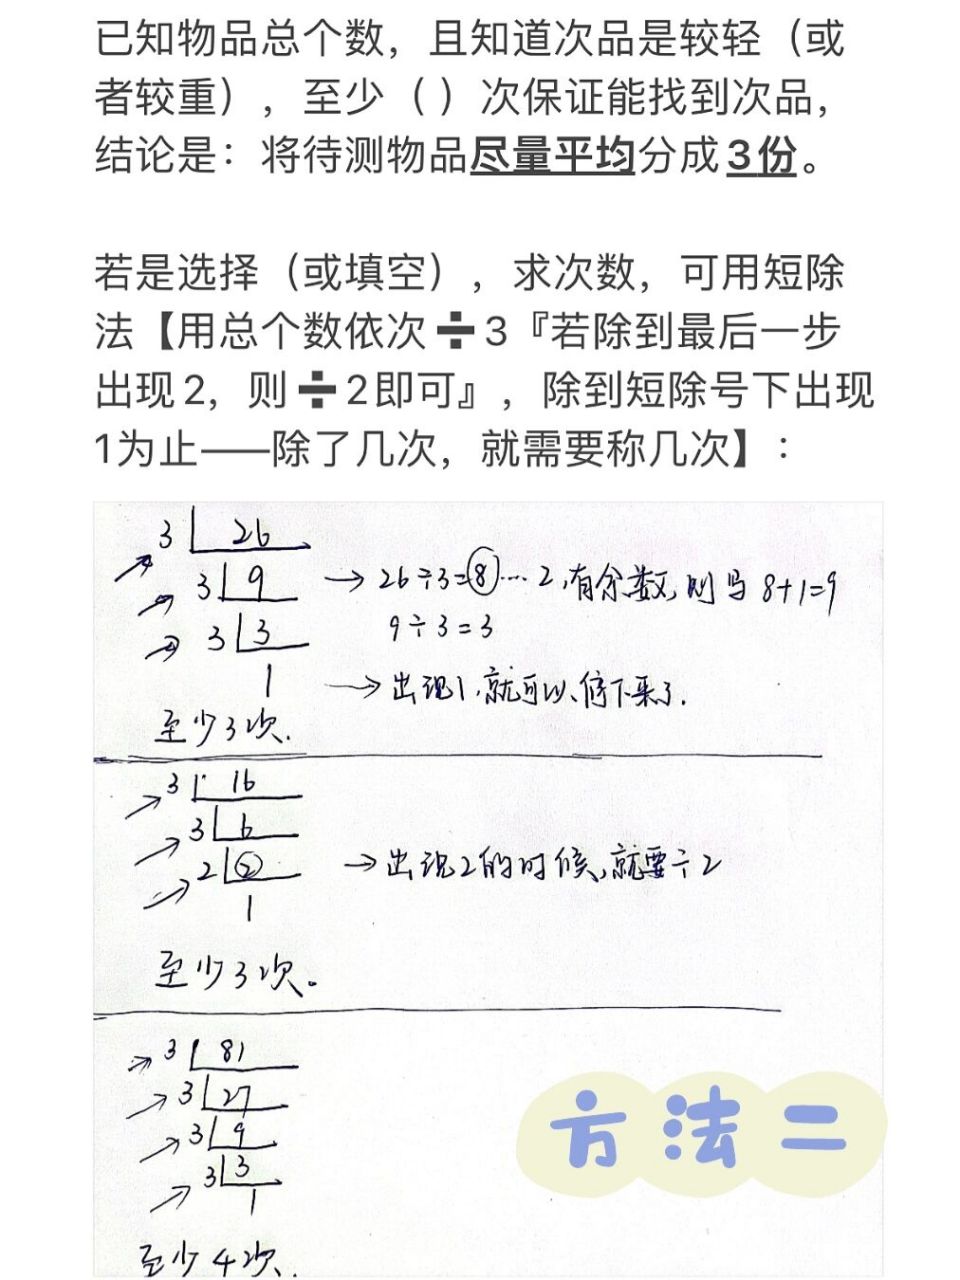 已知物品总个数，且知道次品是较轻（或
者较重），至少（ ）次保证能找到次品，
结论是：将待测物品尽量平均分成3份。
若是选择（或填空），求次数，可用短除
法【用总个数依次➗3『若除到最后一步
出现2，则➗2即可』，除到短除号下出现
1为止——除了几次，就需要称几次】：
3 26
3 9 → 26÷3=8…2,有余数,则写8+1=9
3 3 9÷3=3
1 → 出现1,就可以停下来了.
至少3次.
3 16
3 6
2 2 → 出现2的时候,就要÷2
1
至少3次。
3 81
3 27
3 9
3 3
1
至少4次.
方法二